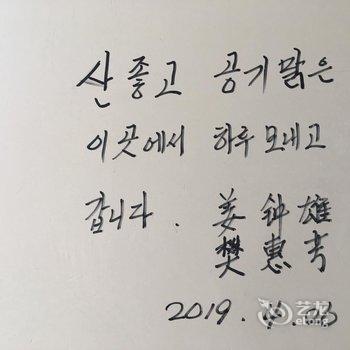 산 좋고 공기 맑은
이 곳에서 하루 모내고
갑니다. 姜钟雄
樊惠
2019.
艺龙
elong